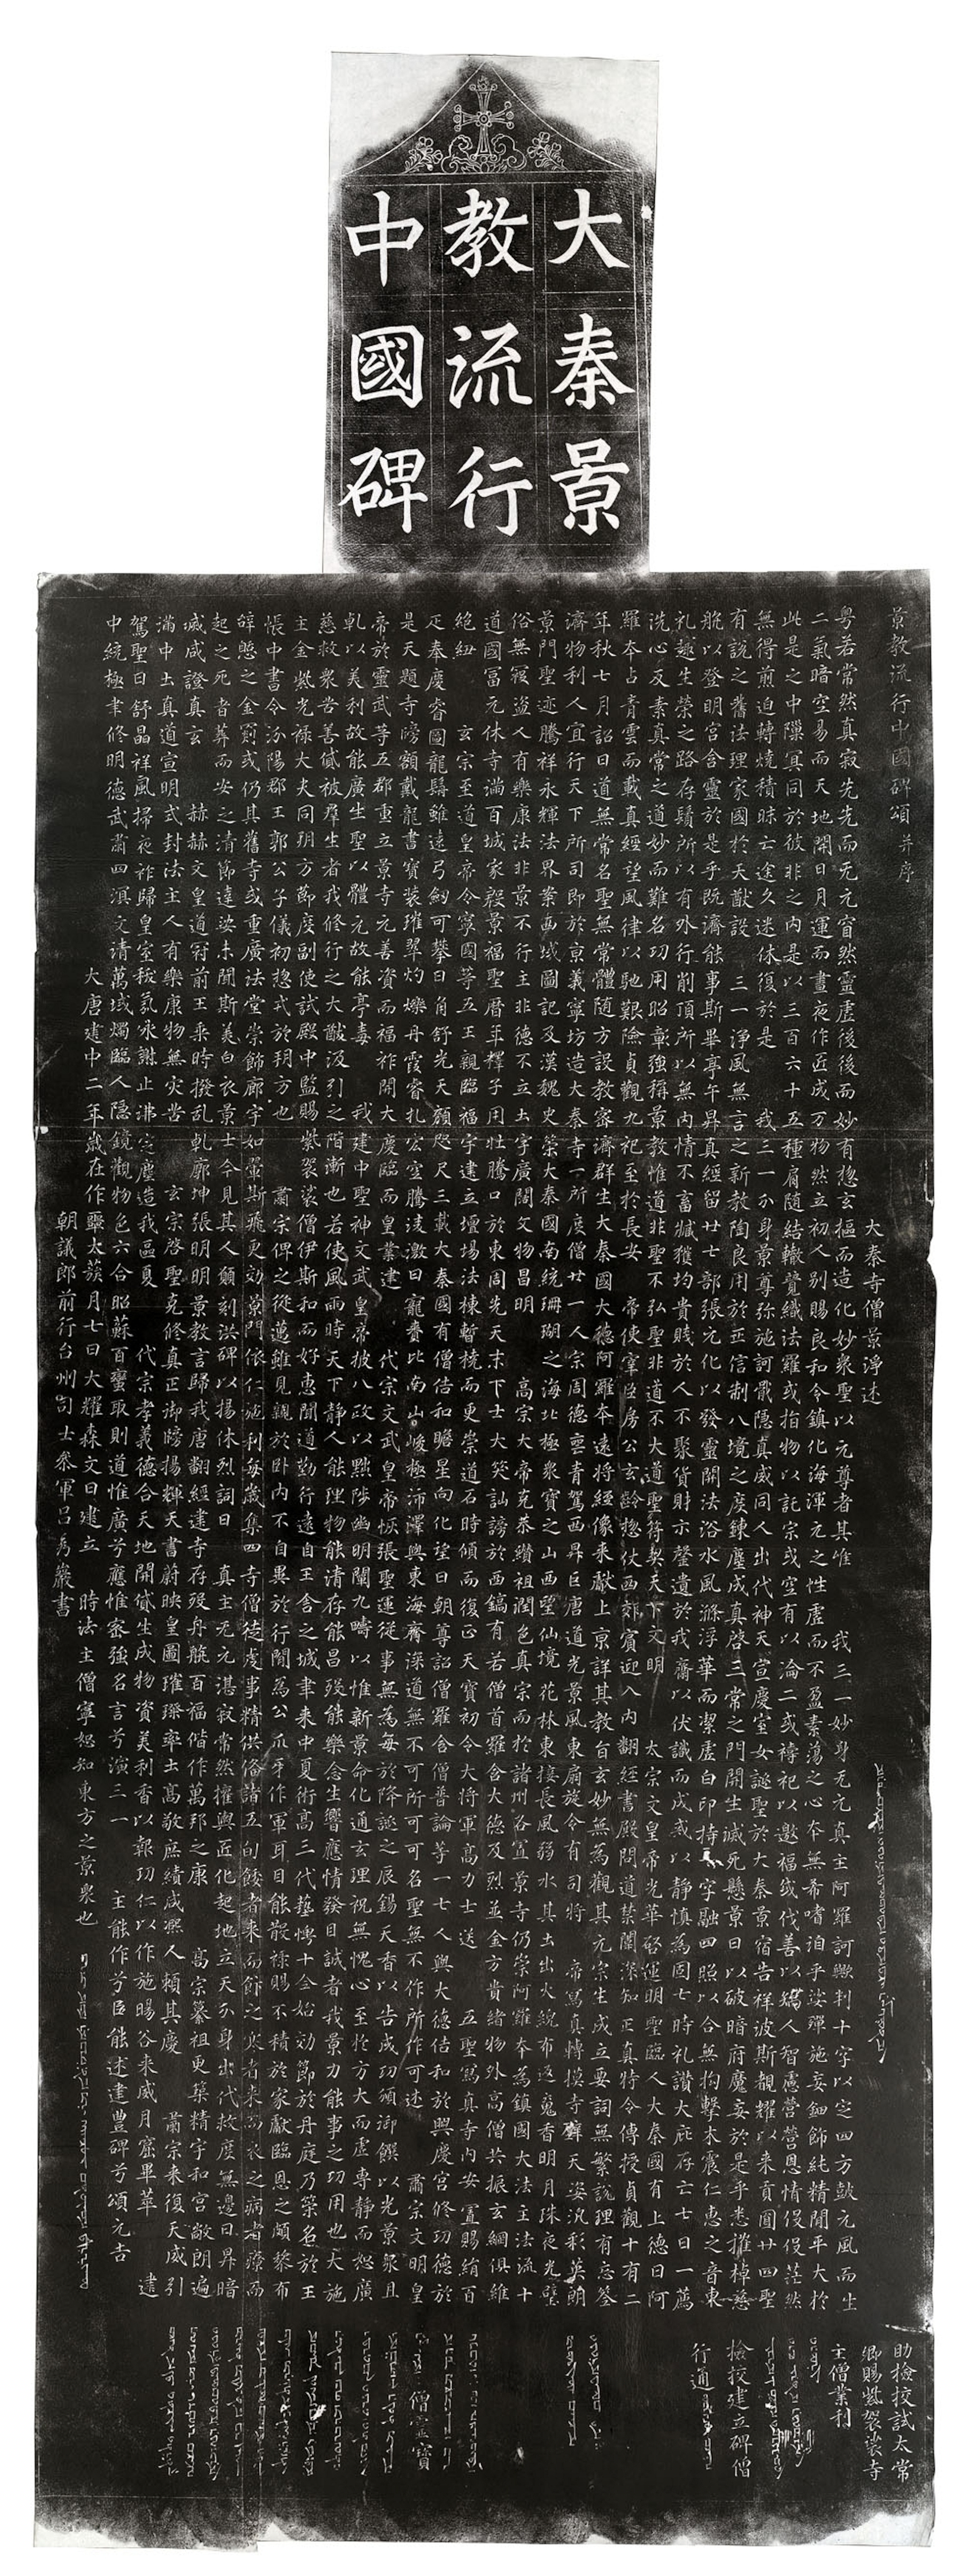 大秦景
教流行
中國碑
景教流行中國碑頌 并序
大秦寺僧景淨述
粤若常然真寂先先而无元窅然靈虛後後而妙有惣玄樞而造化妙衆聖以元尊者其唯 我三一妙身无元真主阿羅訶歟判十字以定四方鼓元風而生
二氣暗空易而天地開日月運而晝夜作匠成万物然立初人別賜良和令鎮化海渾元之性虛而不盈素蕩之心本無希嗜洎乎娑殫施妄鈿飾純精閒平大於
此是之中隟冥同於彼非之內是以三百六十五種肩隨結轍競織法羅或指物以託宗或空有以淪二或禱祀以邀福或伐善以矯人智慮營營恩情役役茫然
無得煎迫轉燒積昧亡途久迷休復於是 我三一分身景尊弥施訶戢隱真威同人出代神天宣慶室女誕聖於大秦景宿告祥波斯覩耀以来貢圓廿四聖
有說之舊法理家國於大猷設 三一淨風無言之新教陶良用於正信制八境之度鍊塵成真啓三常之門開生滅死懸景日以破暗府魔妄於是乎悉摧棹慈
舩以登明宮含靈於是乎既濟能事斯畢亭午昇真經留廿七部張元化以發靈關法浴水風滌浮華而潔虛白印持十字融四照以合無拘擊木震仁惠之音東
礼趣生榮之路存鬚所以有外行削頂所以無內情不畜臧獲均貴賤於人不聚貨財示罄遺於我齋以伏識而成戒以靜慎為固七時礼讚大庇存亡七日一薦
洗心反素真常之道妙而難名功用昭彰強稱景教惟道非聖不弘聖非道不大道聖符契天下文明 太宗文皇帝光華啓運明聖臨人大秦國有上德曰阿
羅本占青雲而載真經望風律以馳艱險貞觀九祀至於長安 帝使宰臣房公玄齡惣仗西郊賓迎入內翻經書殿問道禁闈深知正真特令傳授貞觀十有二
年秋七月詔曰道無常名聖無常體隨方設教密濟群生大秦國大德阿羅本遠將經像来獻上京詳其教旨玄妙無為觀其元宗生成立要詞無繁說理有忘筌
濟物利人宜行天下所司即於京義寧坊造大秦寺一所度僧廿一人宗周德喪青駕西昇巨唐道光景風東扇旋令有司將 帝寫真轉摸寺壁天姿汎彩英朗
景門聖迹騰祥永輝法界案西域圖記及漢魏史策大秦國南統珊瑚之海北極衆寶之山西望仙境花林東接長風弱水其土出火綄布返魂香明月珠夜光璧
俗無寇盜人有樂康法非景不行主非德不立土宇廣闊文物昌明 高宗大帝克恭纘祖潤色真宗而於諸州各置景寺仍崇阿羅本為鎮國大法主法流十
道國富元休寺滿百城家殷景福聖曆年釋子用壯騰口於東周先天末下士大笑訕謗於西鎬有若僧首羅含大德及烈並金方貴緒物外高僧共振玄綱俱維
絕紐 玄宗至道皇帝令寧國等五王親臨福宇建立壇場法棟暫橈而更崇道石時傾而復正天寶初令大將軍高力士送 五聖寫真寺內安置賜絹百
疋奉慶睿圖龍髯雖遠弓劒可攀日角舒光天顏咫尺三載大秦國有僧佶和瞻星向化望日朝尊詔僧羅含僧普論等一七人與大德佶和於興慶宮修功德於
是天題寺牓額戴龍書寶裝璀翠灼爍丹霞睿扎宏空騰淩激日寵賚比南山峻極沛澤與東海齊深道無不可所可可名聖無不作所作可述 肅宗文明皇
帝於靈武等五郡重立景寺元善資而福祚開大慶臨而皇業建 代宗文武皇帝恢張聖運從事無為每於降誕之辰錫天香以告成功頒御饌以光景衆且
軋以美利故能廣生聖以體元故能亭毒 我建中聖神文武皇帝披八政以黜陟幽明闡九疇以惟新景命化通玄理祝無愧心至於方大而虛專靜而恕廣
慈救衆苦善貸被羣生者我修行之大猷汲引之階漸也若使風雨時天下靜人能理物能清存能昌歿能樂念生響應情發目誠者我景力能事之功用也大施
主金紫光祿大夫同朔方節度副使試殿中監賜紫袈裟僧伊斯和而好惠聞道勤行遠自王舍之城聿来中夏術高三代藝博十全始効節於丹庭乃策名於王
帳中書令汾陽郡王郭公子儀初惣戎於朔方也 肅宗俾之從邁雖見親於卧內不自異於行閒為公爪牙作軍耳目能散祿賜不積於家獻臨恩之頗黎布
辤憩之金罽或仍其舊寺或重廣法堂崇飾廊宇如翬斯飛更効景門依仁施利每歲集四寺僧徒虔事精供俻諸五旬餧者来而飰之寒者来而衣之病者療而
起之死者葬而安之清節達娑未聞斯美白衣景士今見其人願刻洪碑以揚休烈詞曰 真主无元湛寂常然權輿匠化起地立天分身出代救度無邊日昇暗
滅咸證真玄 赫赫文皇道冠前王乘時撥乱軋廓坤張明明景教言歸我唐翻經建寺存歿舟舩百福偕作萬邦之康 高宗纂祖更築精宇和宮敞朗遍
滿中土真道宣明式封法主人有樂康物無災苦 玄宗啓聖克修真正御牓揚輝天書蔚映皇圖璀璨率土高敬庶績咸熈人賴其慶 肅宗来復天威引
駕聖日舒晶祥風掃夜祚歸皇室祅氛永謝止沸定塵造我區夏 代宗孝義德合天地開貸生成物資美利香以報功仁以作施暘谷来威月窟畢萃 建
中統極聿修明德武肅四溟文清萬域燭臨人隱鏡觀物色六合昭蘇百蠻取則道惟廣兮應惟密強名言兮演三一 主能作兮臣能述建豐碑兮頌元吉
大唐建中二年歲在作噩太蔟月七日大耀森文日建立 時法主僧寧恕知東方之景衆也
朝議郎前行台州司士叅軍呂秀巖書
助檢挍試太常
卿賜紫袈裟寺
主僧業利
檢挍建立碑僧
行通
僧靈寶